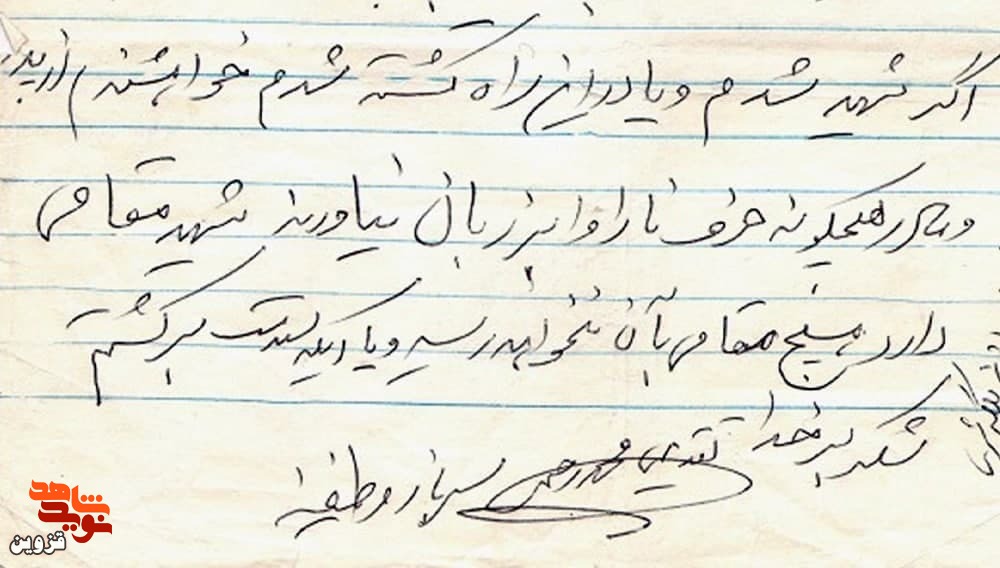 اگر شهید شدم و یا در این راه کشته شدم خواهشمندم از پدر
و مادر هیچگونه حرف ناروا بر زبان نیاورند شهید مقامی
دارد هیچ مقامی بآن نخواهد رسید و یا اینکه برگشتم
شکر بر خدا تقدیمی محمد سرباز وظیفه
نوید شاهد
قزوین